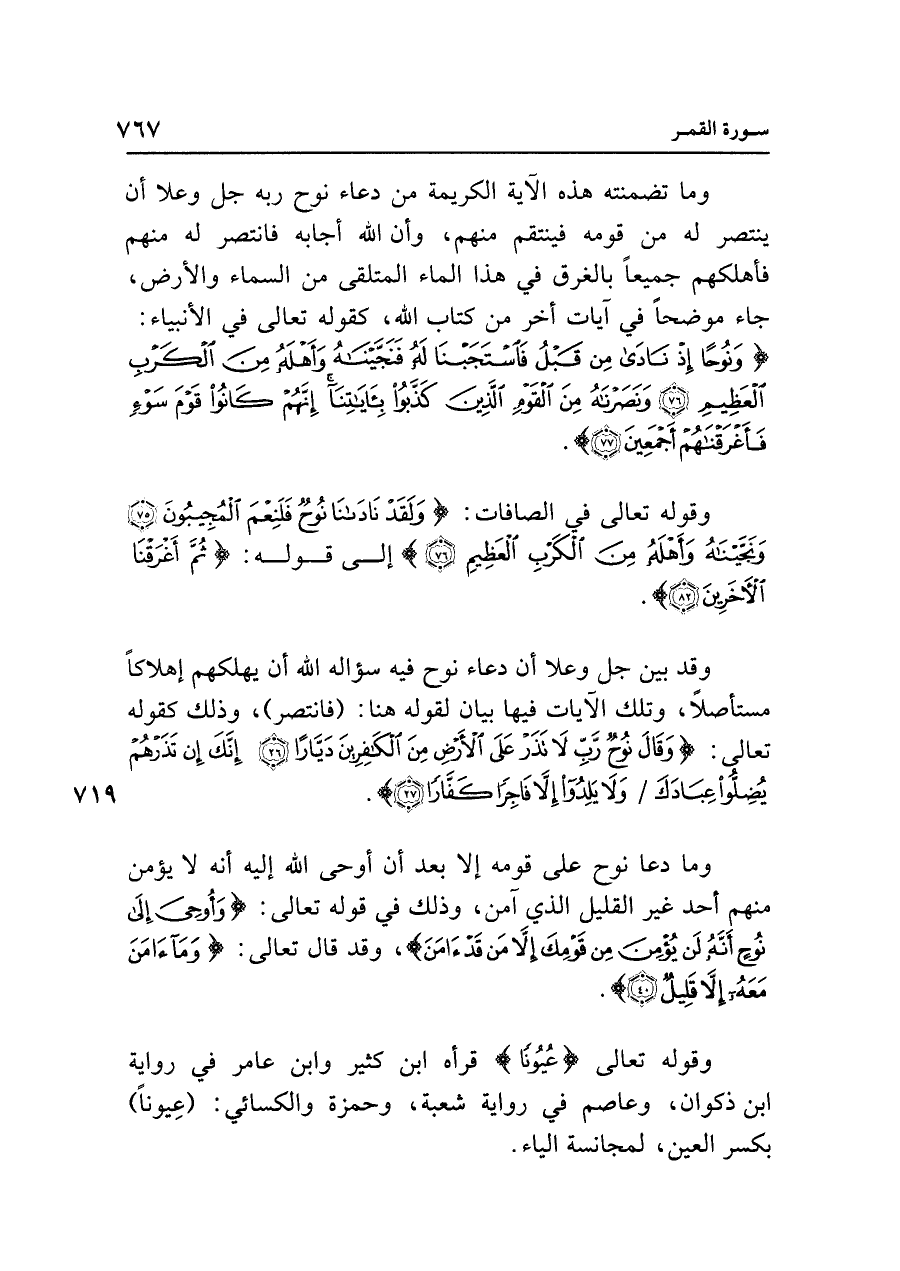 سورة القمر ٧٦٧
وما تضمنته هذه الآية الكريمة من دعاء نوح ربه جل وعلا أن
ينتصر له من قومه فينتقم منهم، وأن الله أجابه فانتصر له منهم
فأهلكهم جميعاً بالغرق في هذا الماء المتلقى من السماء والأرض،
جاء موضحاً في آيات أخر من كتاب الله، كقوله تعالى في الأنبياء:
﴿ وَنُوحًا إِذْ نَادَىٰ مِن قَبْلُ فَٱسْتَجَبْنَا لَهُۥ فَنَجَّيْنَٰهُ وَأَهْلَهُۥ مِنَ ٱلْكَرْبِ
ٱلْعَظِيمِ ۝٧٦ وَنَصَرْنَٰهُ مِنَ ٱلْقَوْمِ ٱلَّذِينَ كَذَّبُوا۟ بِـَٔايَٰتِنَآ ۚ إِنَّهُمْ كَانُوا۟ قَوْمَ سَوْءٍ
فَأَغْرَقْنَٰهُمْ أَجْمَعِينَ ۝٧٧﴾.
وقوله تعالى في الصافات: ﴿ وَلَقَدْ نَادَىٰنَا نُوحٌ فَلَنِعْمَ ٱلْمُجِيبُونَ ۝٧٥
وَنَجَّيْنَٰهُ وَأَهْلَهُۥ مِنَ ٱلْكَرْبِ ٱلْعَظِيمِ ۝٧٦ ﴾ إلى قوله: ﴿ ثُمَّ أَغْرَقْنَا
ٱلْأَخَرِينَ ۝٨٢﴾.
وقد بين جل وعلا أن دعاء نوح فيه سؤاله الله أن يهلكهم إهلاكاً
مستأصلاً، وتلك الآيات فيها بيان لقوله هنا: (فانتصر)، وذلك كقوله
تعالى: ﴿ وَقَالَ نُوحٌ رَّبِّ لَا تَذَرْ عَلَى ٱلْأَرْضِ مِنَ ٱلْكَٰفِرِينَ دَيَّارًا ۝٢٦ إِنَّكَ إِن تَذَرْهُمْ
يُضِلُّوا۟ عِبَادَكَ / وَلَا يَلِدُوٓا۟ إِلَّا فَاجِرًا كَفَّارًا ۝٢٧﴾. ٧١٩
وما دعا نوح على قومه إلا بعد أن أوحى الله إليه أنه لا يؤمن
منهم أحد غير القليل الذي آمن، وذلك في قوله تعالى: ﴿ وَأُوحِىَ إِلَىٰ
نُوحٍ أَنَّهُۥ لَن يُؤْمِنَ مِن قَوْمِكَ إِلَّا مَن قَدْ ءَامَنَ﴾، وقد قال تعالى: ﴿ وَمَآ ءَامَنَ
مَعَهُۥٓ إِلَّا قَلِيلٌ ۝٤٠﴾.
وقوله تعالى ﴿ عُيُونًا ﴾ قرأه ابن كثير وابن عامر في رواية
ابن ذكوان، وعاصم في رواية شعبة، وحمزة والكسائي: (عِيوناً)
بكسر العين، لمجانسة الياء.